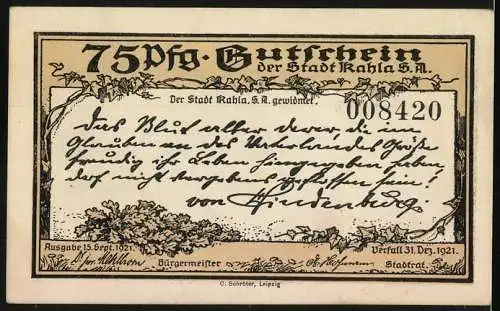 75 Pfg. Gutschein
der Stadt Kahla S.A.
Der Stadt Kahla, S.A. gewidmet.
008420
Das Blut aller derer, die im
Glauben an des Vaterlandes Größe
freudig ihr Leben hingegeben haben,
darf nicht vergebens geflossen sein!
von Hindenburg.
Ausgabe 15. Sept. 1921.
Verfall 31. Dez. 1921.
Bürgermeister
Stadtrat.
C. Schröter, Leipzig